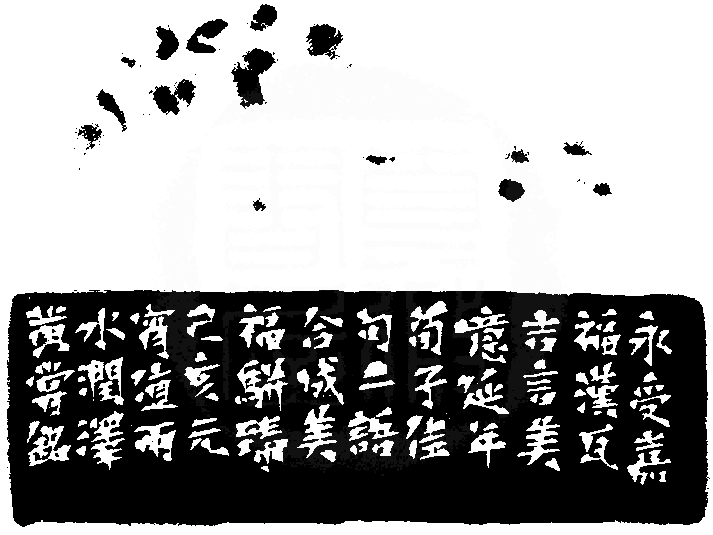 永受嘉
福漢瓦
吉言美
意延年
荀子佳
句二語
合成美
福駢臻
己亥元
宵值雨
水潤澤
黃嘗銘